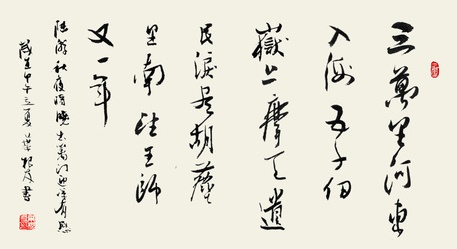 三萬里河東
入海五千仞
嶽上摩天遺
民淚盡胡塵
里南望王師
又一年
陸游秋夜將曉出籬門迎涼有感
歲在甲午夏書